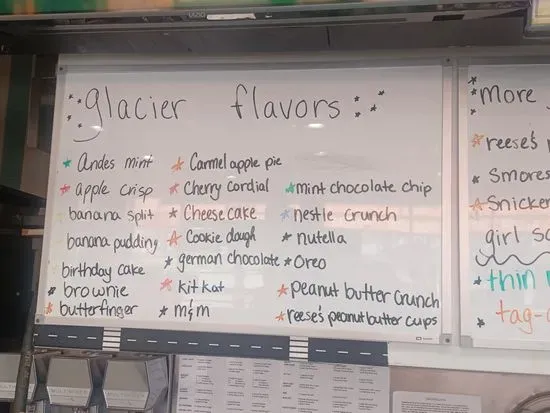 glacier flavors
Andes mint
apple crisp
banana split
banana pudding
birthday cake
brownie
butterfinger
Carmel apple pie
Cherry Cordial
Cheese cake
Cookie dough
german chocolate
kit kat
m&m
mint chocolate chip
nestle crunch
nutella
oreo
peanut butter crunch
reese's peanut butter cups
more
reese's
Smores
Snicker
girl sc
thin
tag-